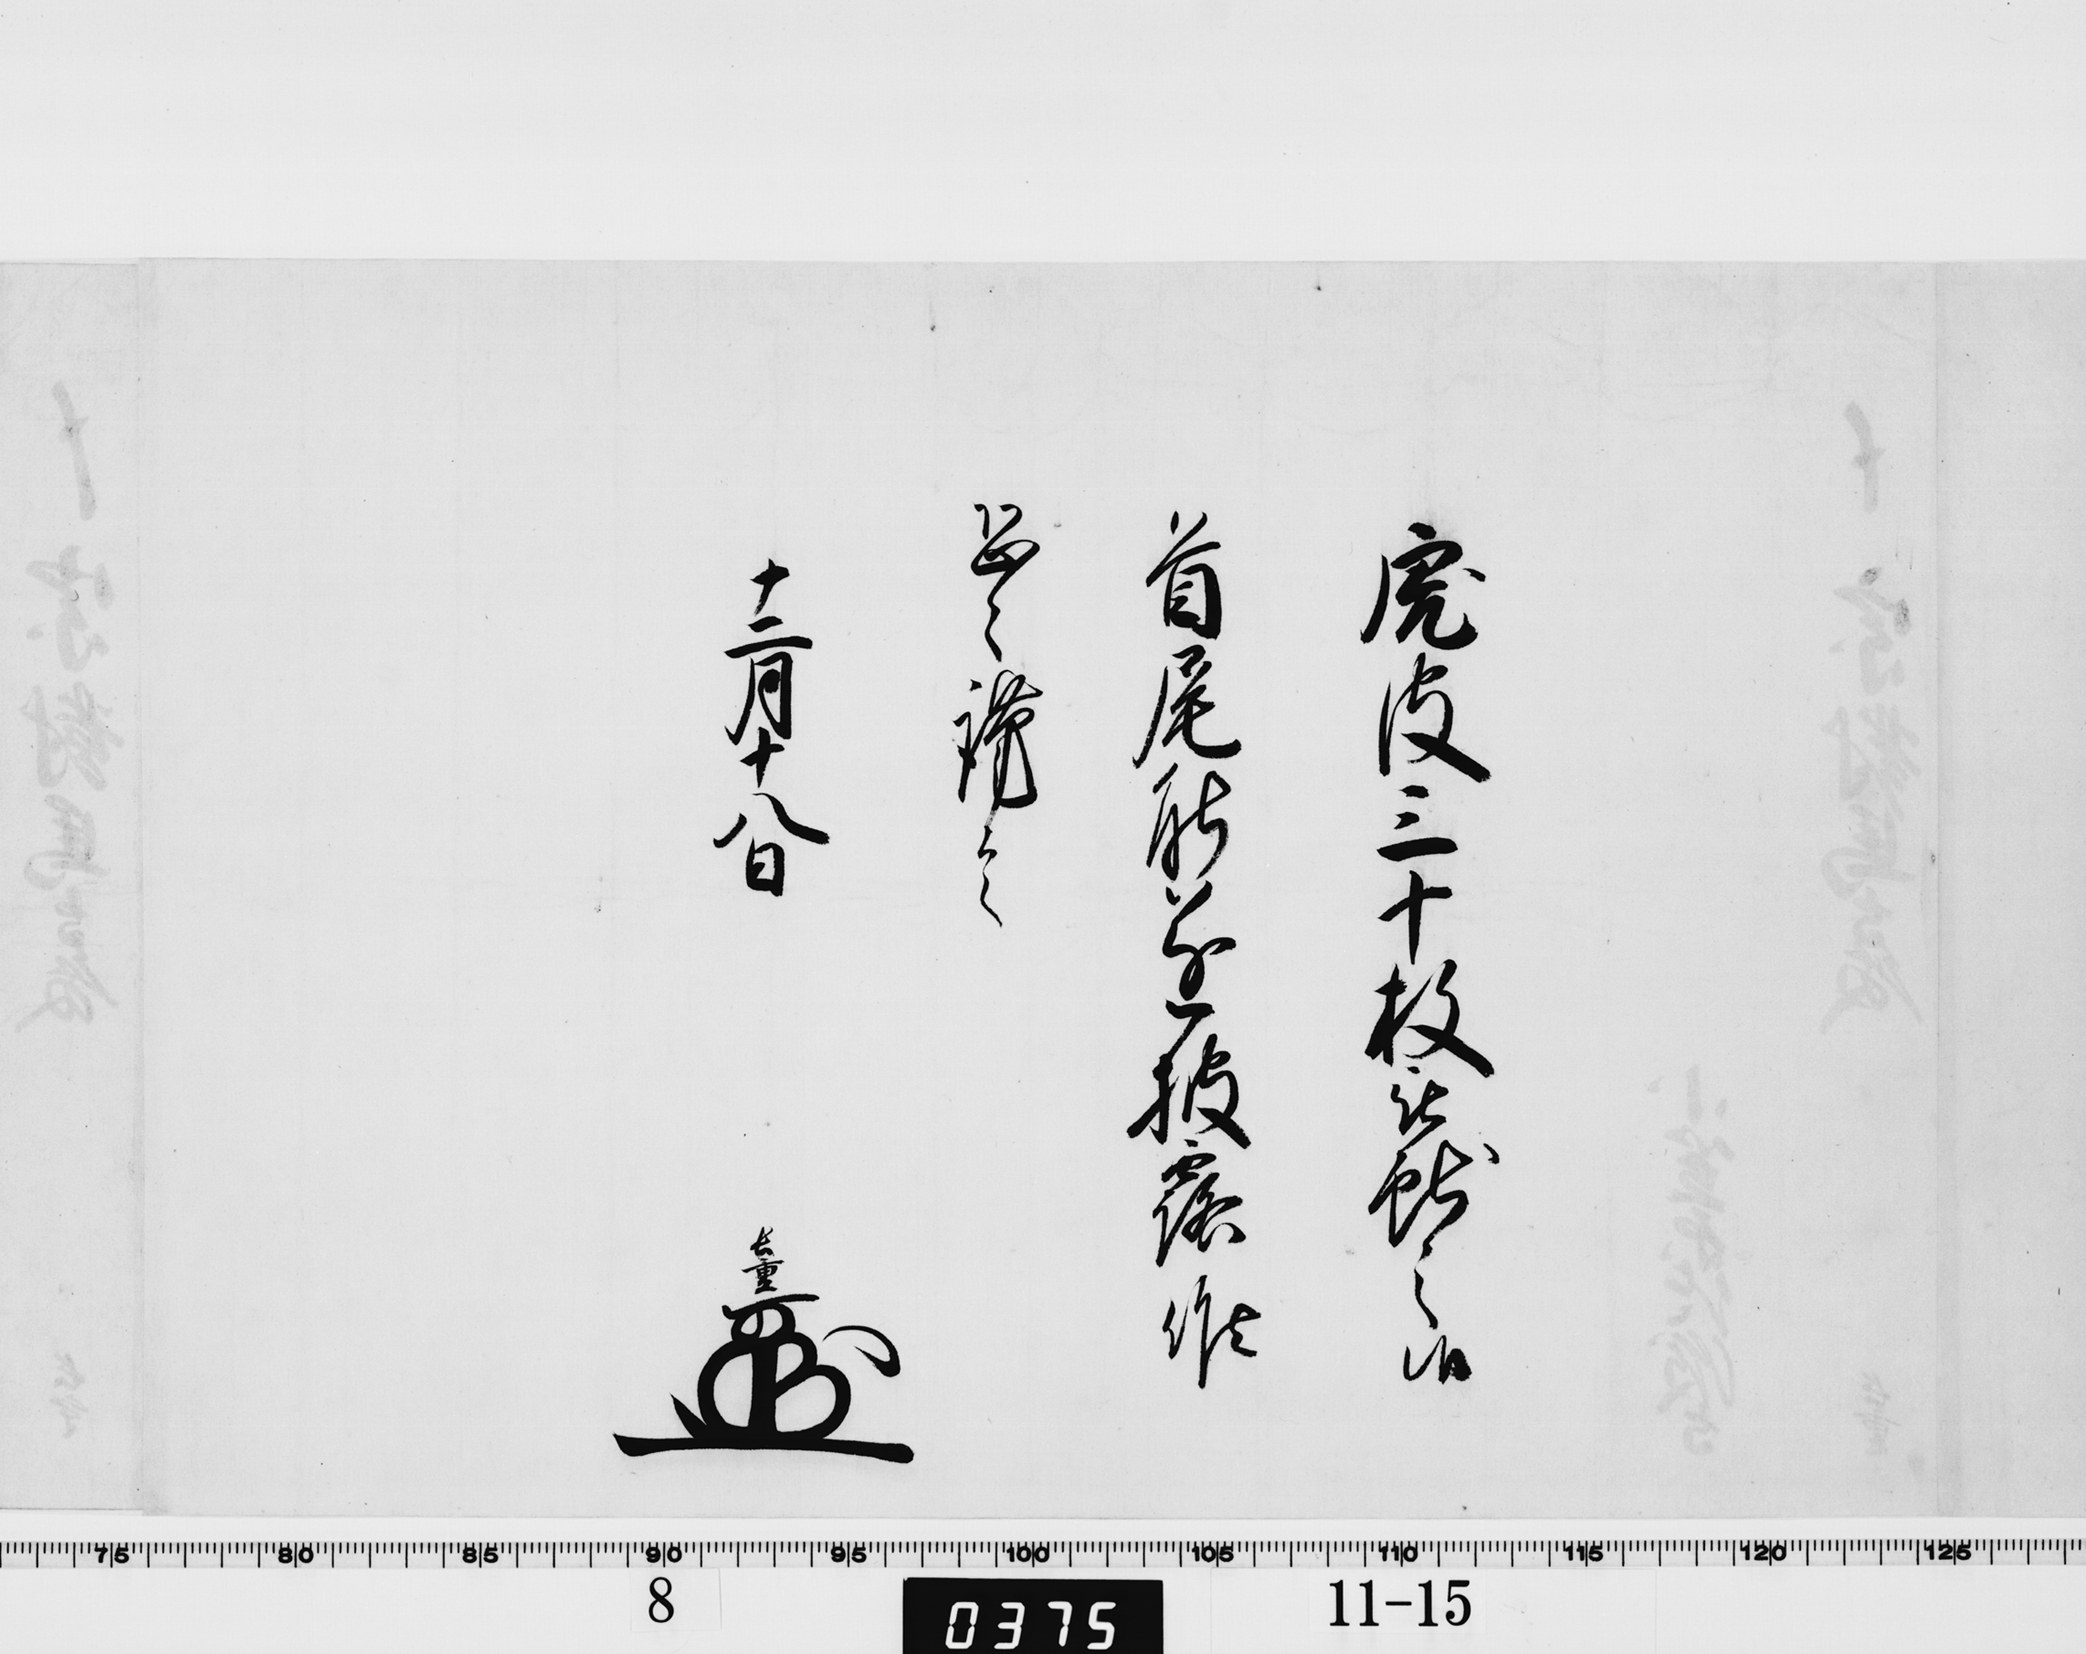 虎皮三十枚被献之
首尾能遂披露候
恐々謹言
十二月十八日
長重
75 80 85 90 95 100 105 110 115 120 125
8 0375 11-15